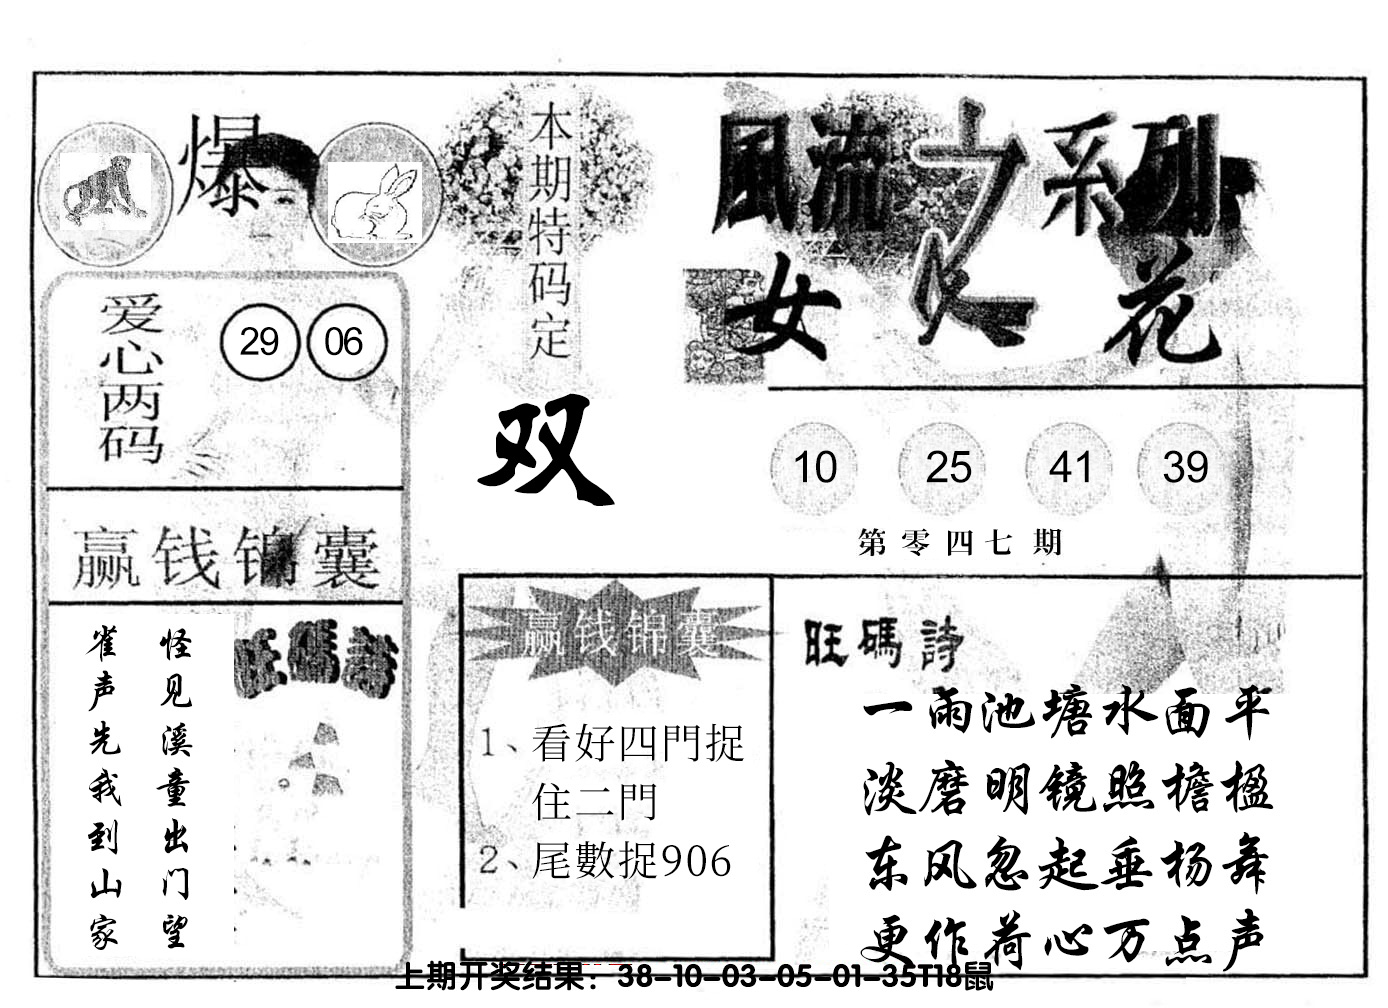 爆
本期特码定
双
風流之系列
女人花
爱心两码
29 06
10 25 41 39
第零四七期
赢钱锦囊
怪见溪童出门望
雀声先我到山家
旺碼詩
赢钱锦囊
1、看好四門捉
住二門
2、尾數捉906
旺碼詩
一雨池塘水面平
淡磨明镜照檐楹
东风忽起垂杨舞
更作荷心万点声
上期开奖结果：38-10-03-05-01-35T18鼠